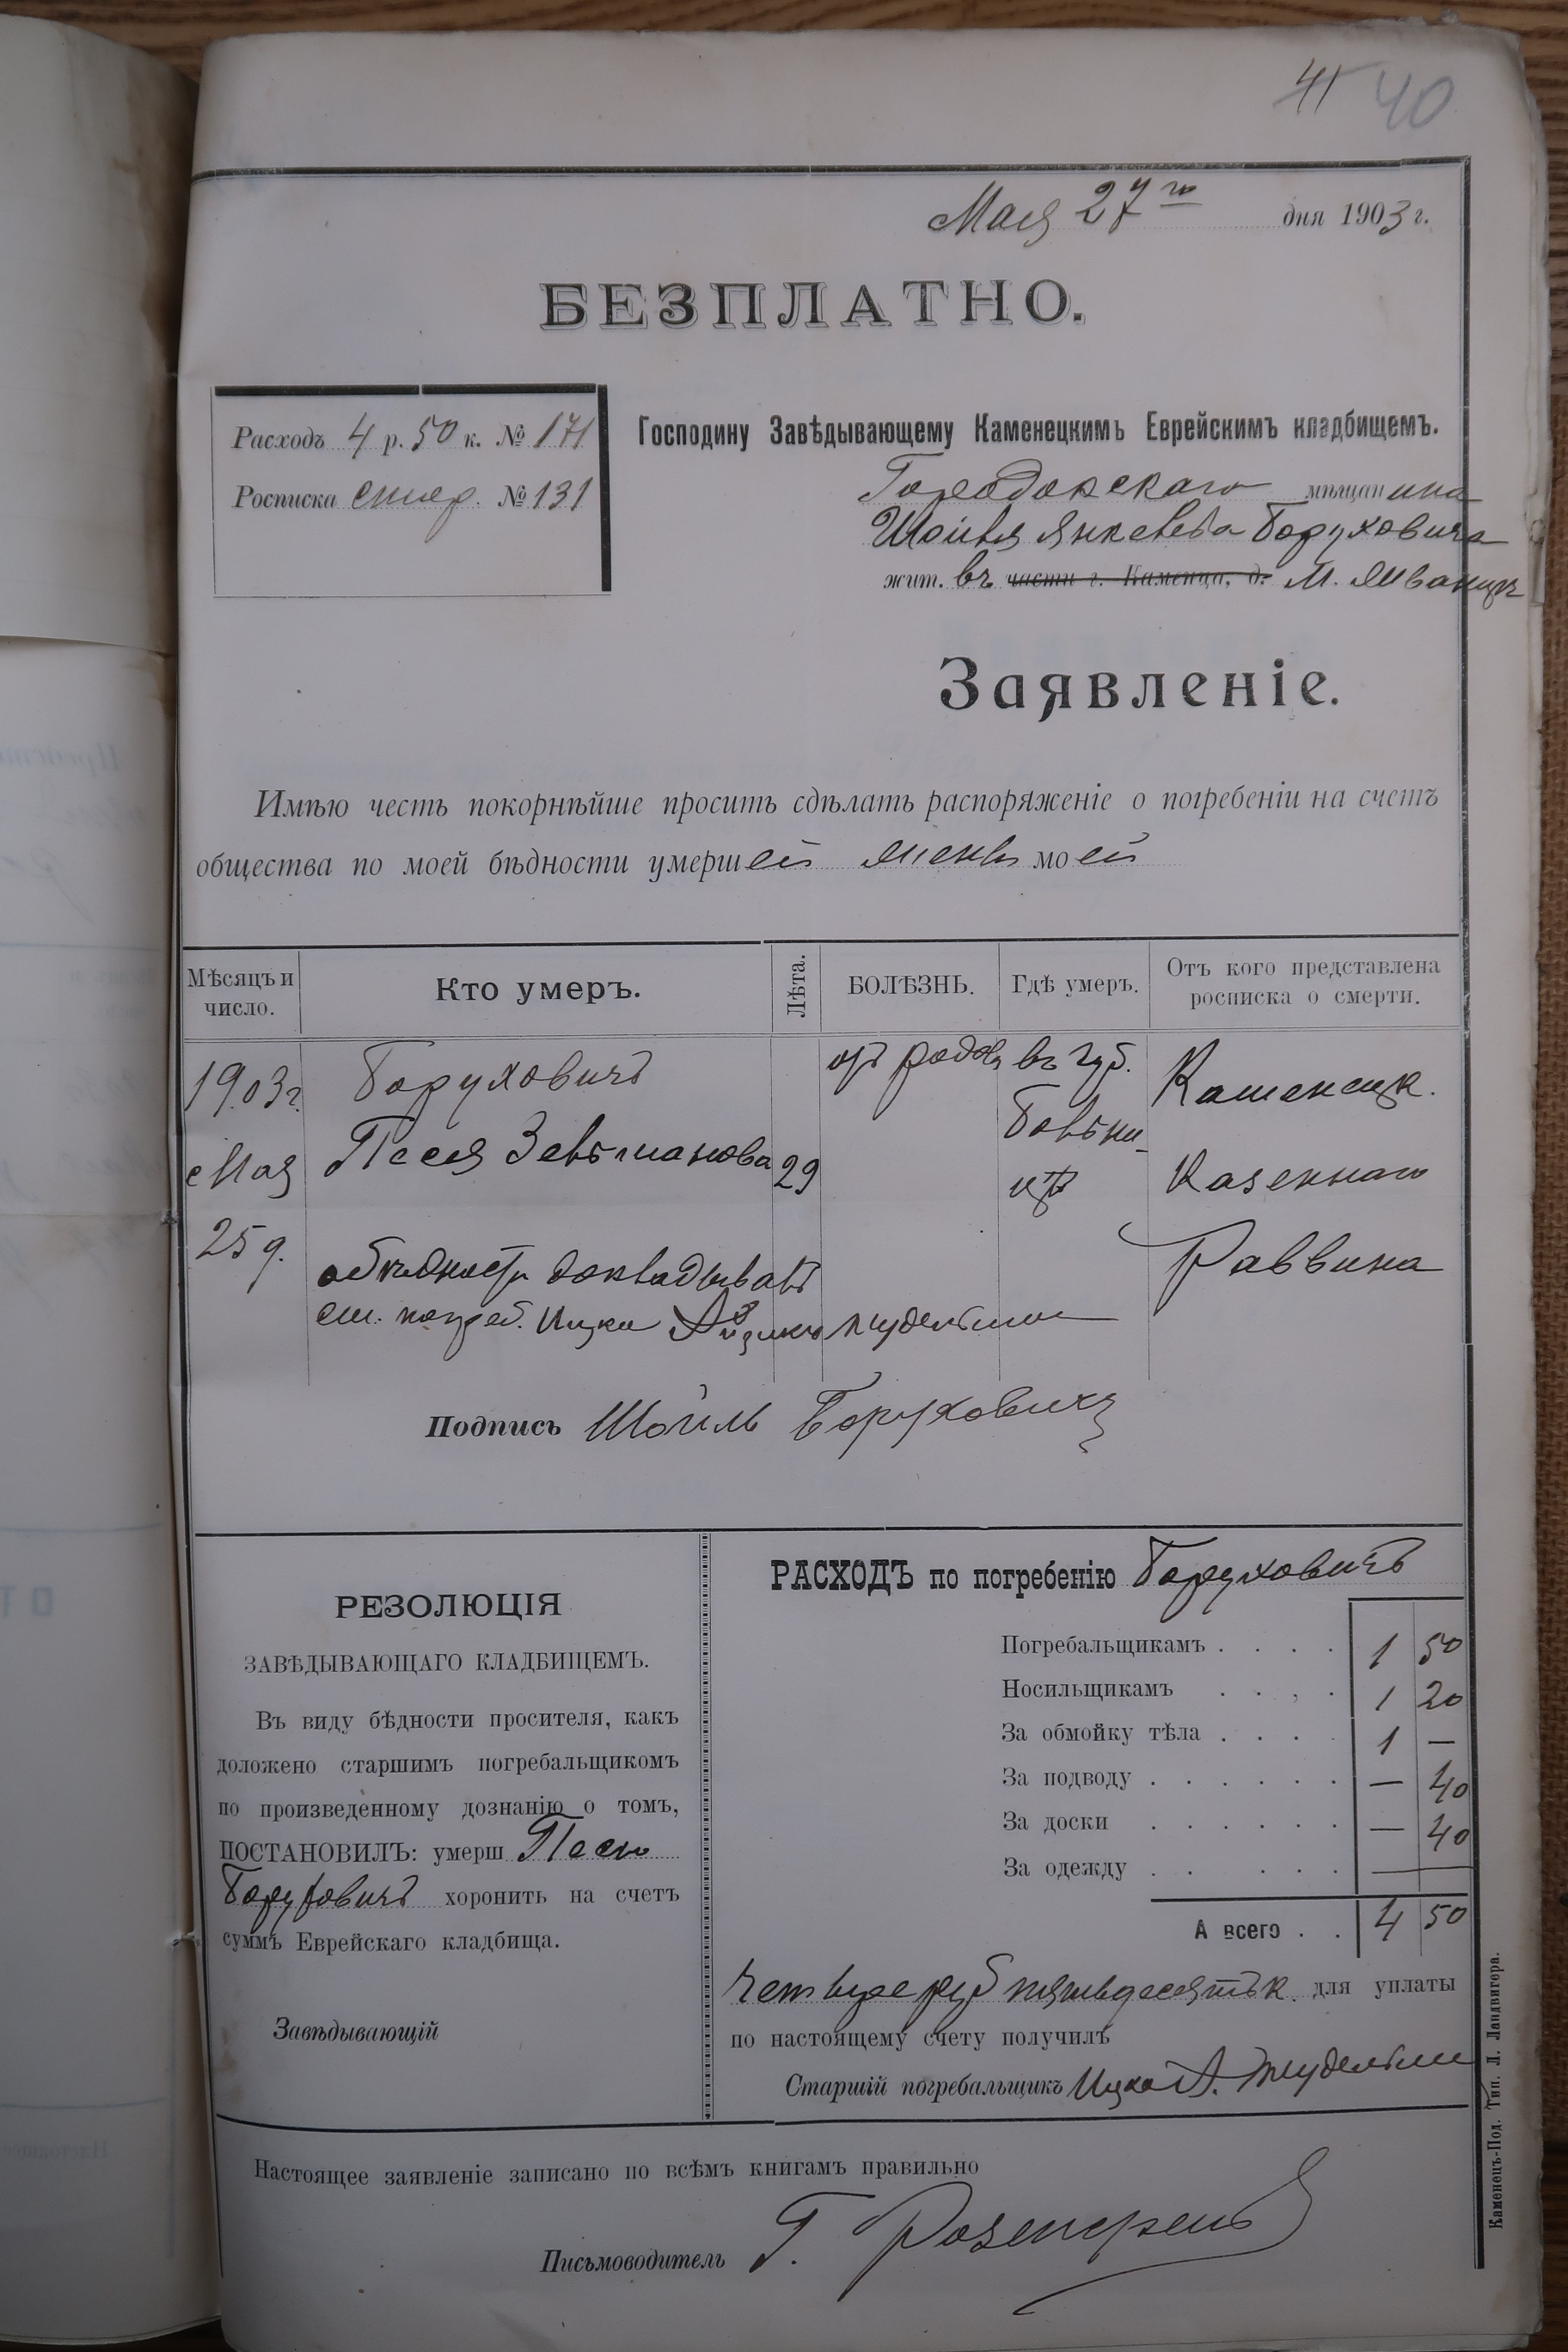 41 40
Мая 27го дня 1903 г.
БЕЗПЛАТНО.
Расходъ 4 р. 50 к. № 171
Росписка смер. № 131
Господину Завѣдывающему Каменецкимъ Еврейскимъ кладбищемъ.
Городокскаго мѣщанина
Шойля Янкелева Боруховича
жит. въ части г. Каменца, д. М. Жванцѣ
Заявленіе.
Имѣю честь покорнѣйше просить сдѣлать распоряженіе о погребеніи на счетъ
общества по моей бѣдности умершей жены моей
Мѣсяцъ и число. Кто умеръ. Лѣта. БОЛѢЗНЬ. Гдѣ умеръ. Отъ кого представлена росписка о смерти.
1903 г. Боруховичъ отъ родовъ въ губ. Каменецк.
Мая Песя Зельманова 29 больни-
цѣ Казеннаго
25 д. Раввина
о бѣдности докладывалъ
ст. погреб. Ицко
Подпись Шойль Боруховичъ
РЕЗОЛЮЦІЯ
ЗАВѢДЫВАЮЩАГО КЛАДБИЩЕМЪ.
Въ виду бѣдности просителя, какъ
доложено старшимъ погребальщикомъ
по произведенному дознанію о томъ,
ПОСТАНОВИЛЪ: умерш Песю
Боруховичъ хоронить на счетъ
суммъ Еврейскаго кладбища.
Завѣдывающій
РАСХОДЪ по погребенію Боруховичъ
Погребальщикамъ . . . . 1 50
Носильщикамъ . . , . 1 20
За обмойку тѣла . . . . 1 —
За подводу . . . . . . — 40
За доски . . . . . . — 40
За одежду . . . . . —
А всего . . 4 50
Четыре руб пятьдесятъ к. для уплаты
по настоящему счету получилъ
Старшій погребальщикъ Ицко А.
Настоящее заявленіе записано по всѣмъ книгамъ правильно
Письмоводитель Г. Розенгренъ
Каменецъ-Под. Тип. Л. Ландвигера.